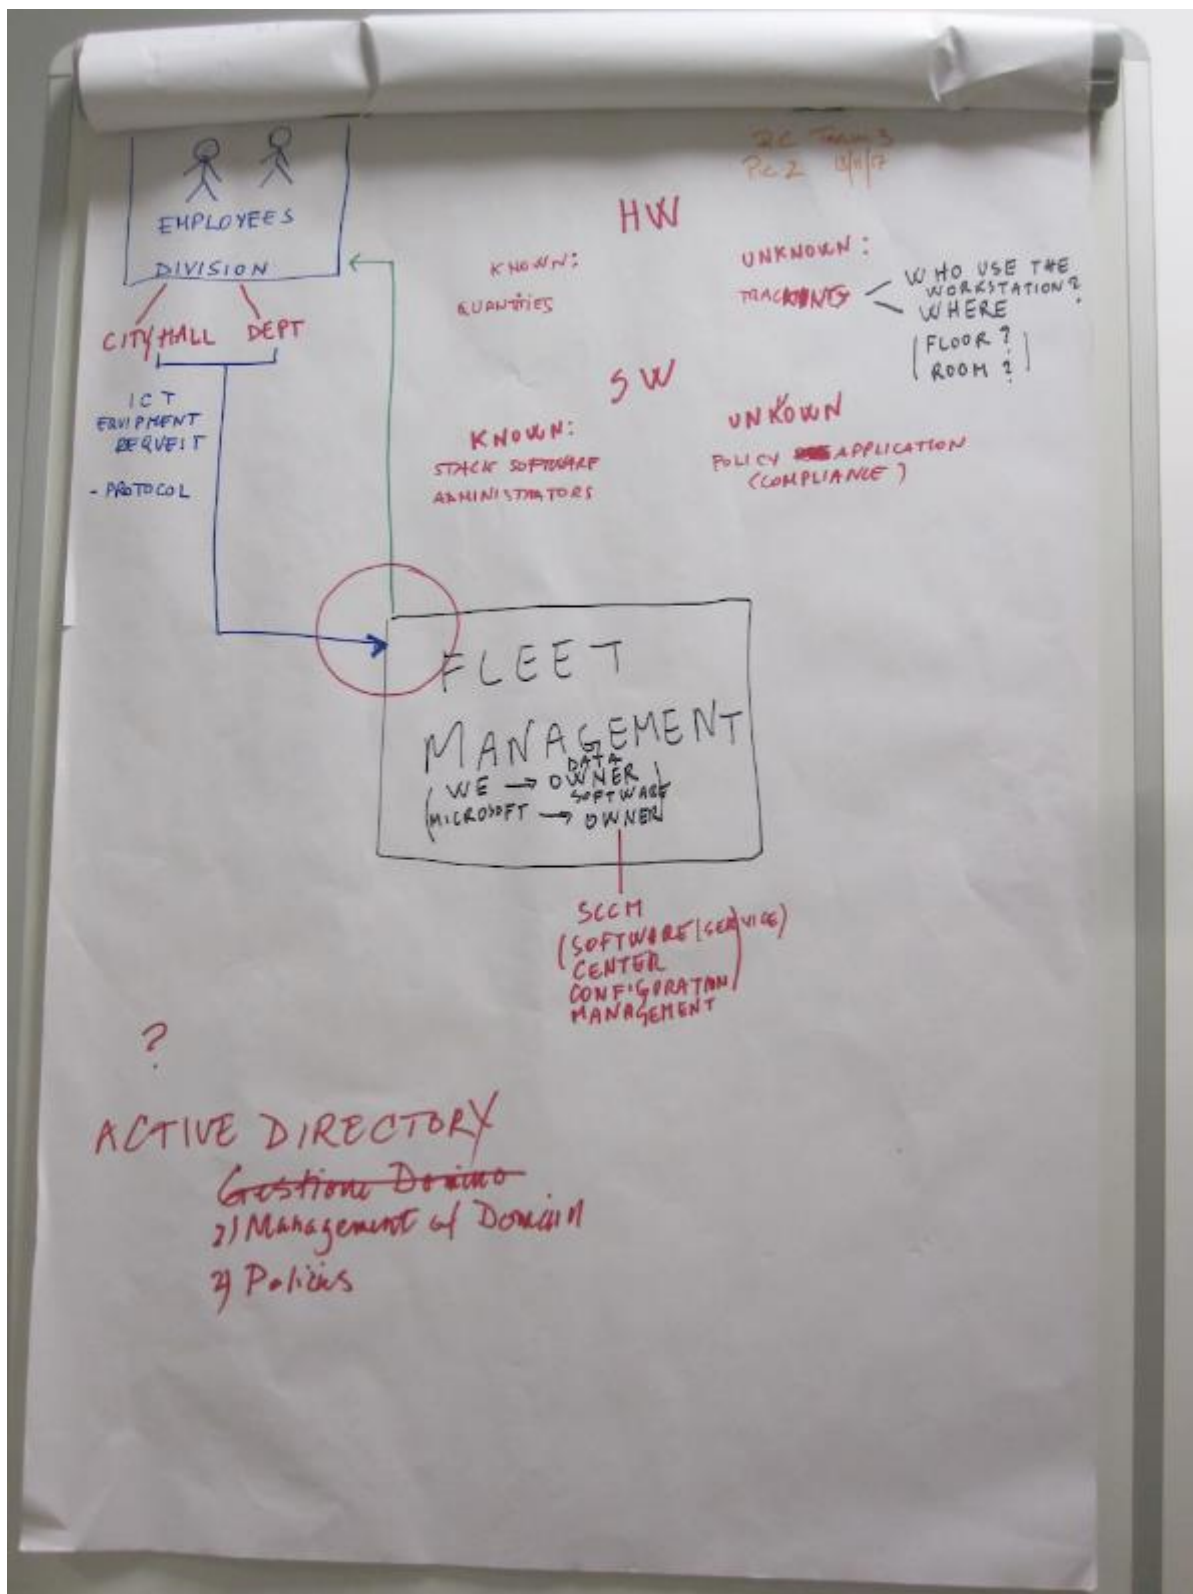 Team 3
Pc 2
EMPLOYEES
DIVISION
CITY HALL
DEPT
ICT
EQUIPMENT
REQUEST
- PROTOCOL
HW
KNOWN:
QUANTITIES
UNKNOWN:
WHO USE THE
WORKSTATION?
WHERE
(FLOOR ?
ROOM ?)
SW
KNOWN:
STACK SOFTWARE
ADMINISTRATORS
UNKOWN
POLICY APPLICATION
(COMPLIANCE)
FLEET
MANAGEMENT
(WE → DATA OWNER
MICROSOFT → SOFTWARE OWNER)
SCCM
(SOFTWARE (SERVICE)
CENTER
CONFIGORATION
MANAGEMENT
?
ACTIVE DIRECTORY
Gestione Dominio
Management of Domain
2) Policies